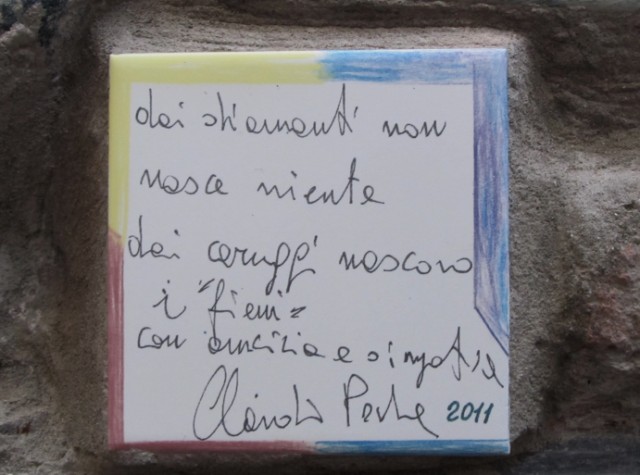 dai diamanti non
nasce niente
dai caruggi nascono
i "fieui"
con amicizia e simpatia
2011